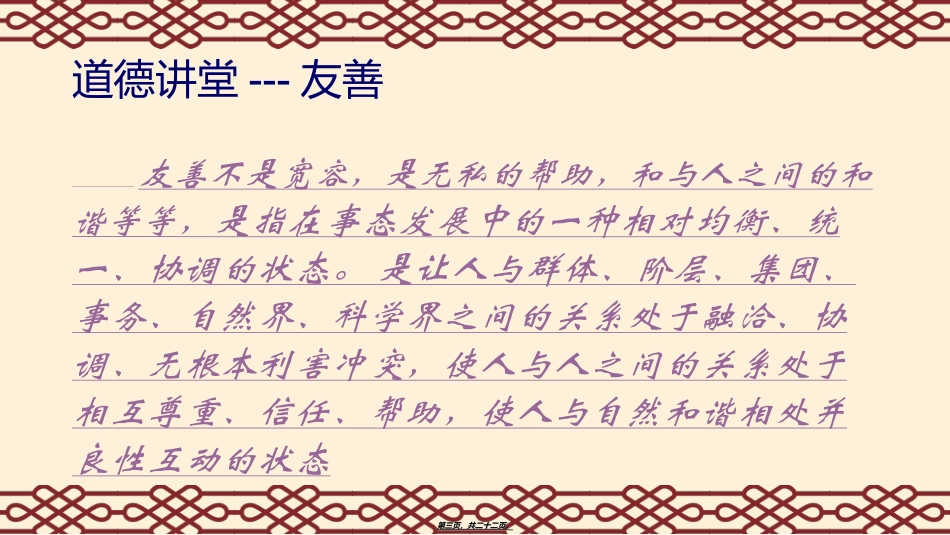 道德讲堂 --- 友善
友善不是宽容，是无私的帮助，和与人之间的和
谐等等，是指在事态发展中的一种相对均衡、统
一、协调的状态。 是让人与群体、阶层、集团、
事务、自然界、科学界之间的关系处于融洽、协
调、无根本利害冲突，使人与人之间的关系处于
相互尊重、信任、帮助，使人与自然和谐相处并
良性互动的状态
第三页，共二十二页。